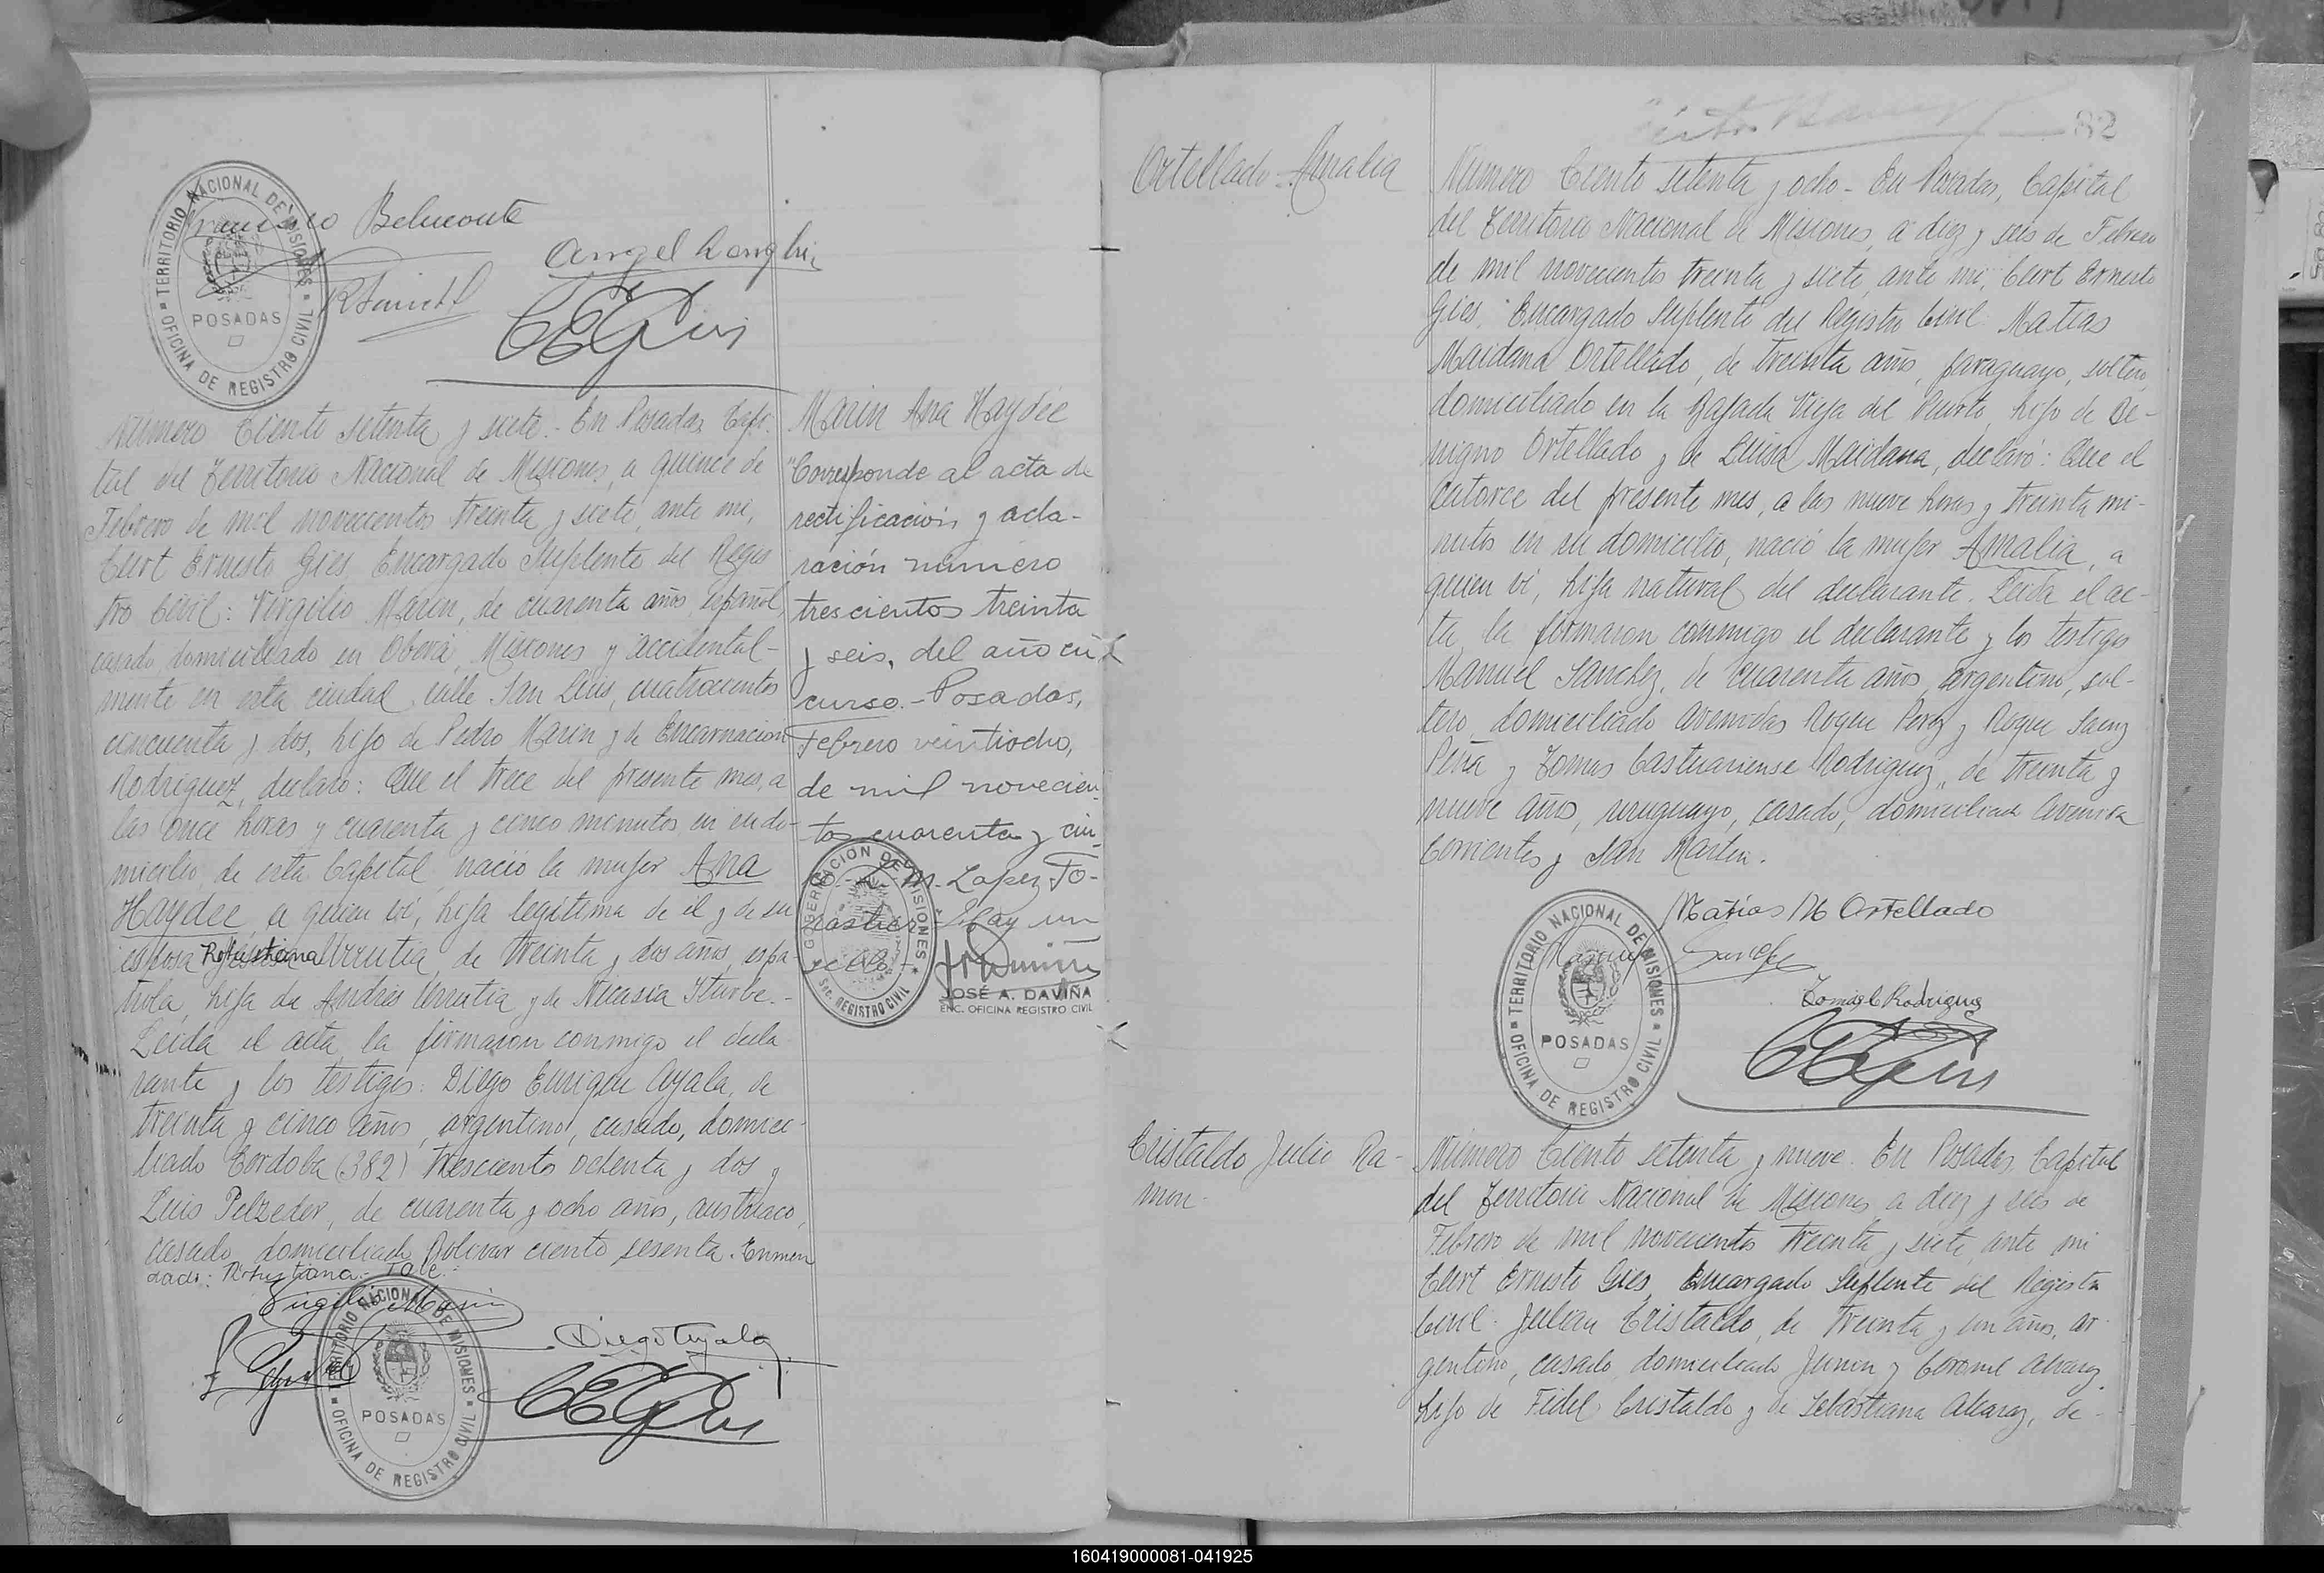 Francisco Belmonte
Angel Longhi
CEGies
TERRITORIO NACIONAL DE MISIONES
POSADAS
OFICINA DE REGISTRO CIVIL
Número Ciento setenta y siete.- En Posadas, Capi-
tal del Territorio Nacional de Misiones, a quince de
Febrero de mil novecientos treinta y siete, ante mi,
Curt Ernesto Gies, Encargado Suplente del Regis
tro Civil: Virgilio Marin, de cuarenta años, español,
casado, domiciliado en Oberá, Misiones y accidental-
mente en esta ciudad calle San Luis, cuatrocientos
cincuenta y dos, hijo de Pedro Marin y de Encarnación
Rodriguez, declaró: Que el trece del presente mes, a
las once horas y cuarenta y cinco minutos, en su do-
micilio de esta Capital, nació la mujer Ana
Haydée, a quien ví, hija legítima de él y de su
esposa Urrutia, de treinta y dos años, espa-
ñola, hija de Andrés Urrutia y de Nicasia Iturbe.-
Leida el acta, la firmaron conmigo el decla
rante y los testigos: Diego Enrique Ayala, de
treinta y cinco años, argentino, casado, domici-
liado Córdoba (382) trescientos ochenta y dos y
Luis Pelzeder, de cuarenta y ocho años, austriaco,
casado, domiciliado Bolivar ciento sesenta. Enmen
dado: Vale.-
Virgilio Marin
Diego E Ayala
CEGies
TERRITORIO NACIONAL DE MISIONES
POSADAS
OFICINA DE REGISTRO CIVIL
Marin Ana Haydée
"Corresponde al acta de
rectificación y acla-
ración número
trescientos treinta
y seis, del año en
curso.- Posadas,
Febrero veintiocho,
de mil novecien-
tos cuarenta y cin-
co.- L. M. Lopez To-
rastier. Hay un
sello.-
GOBERNACIÓN DE MISIONES
Sec. REGISTRO CIVIL
JOSÉ A. DAVIÑA
ENC. OFICINA REGISTRO CIVIL
82
Ortellado Amalia
Número Ciento setenta y ocho.- En Posadas, Capital
del Territorio Nacional de Misiones, a diez y seis de Febrero
de mil novecientos treinta y siete, ante mi, Curt Ernesto
Gies, Encargado Suplente del Registro Civil: Matias
Maidana Ortellado, de treinta años, paraguayo, soltero,
domiciliado en la Bajada Vieja del Puerto, hijo de Be-
nigno Ortellado y de Luisa Maidana, declaró: Que el
catorce del presente mes, a las nueve horas y treinta mi-
nutos en su domicilio, nació la mujer Amalia, a
quien ví, hija natural del declarante. Leida el ac-
ta, la firmaron conmigo el declarante y los testigos
Manuel Sanchez, de cuarenta años, argentino, sol-
tero, domiciliado avenidas Roque Perez y Roque Saenz
Peña y Tomas Rodriguez, de treinta y
nueve años, uruguayo, casado, domiciliado Avenida
Corrientes y San Martin.
Matias M Ortellado
Manuel Sanchez
Tomas C Rodriguez
CEGies
TERRITORIO NACIONAL DE MISIONES
POSADAS
OFICINA DE REGISTRO CIVIL
Cristaldo Julio Ra-
mon.
Número Ciento setenta y nueve. En Posadas, Capital
del Territorio Nacional de Misiones a diez y seis de
Febrero de mil novecientos treinta y siete, ante mi
Curt Ernesto Gies, Encargado Suplente del Registro
Civil: Julian Cristaldo, de treinta y un años, ar
gentino, casado, domiciliado Junin y Coronel Alvarez,
hijo de Fidel Cristaldo y de Sebastiana Alvarez, de-
160419000081-041925